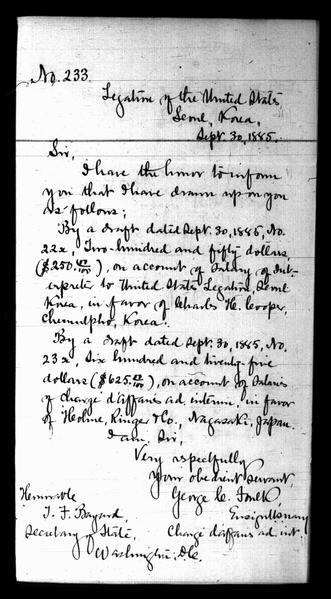 No. 233
Legation of the United States
Seoul, Korea,
Sept. 30, 1885.
Sir,
I have the honor to inform
you that I have drawn upon you
as follows;
By a draft dated Sept. 30, 1885, No.
22x, Two-hundred and fifty dollars
($250.00/100), on account of Salary of Int-
erpreter to United States Legation Seoul
Korea, in favor of Charles H. Cooper,
Chemulpho, Korea.
By a draft dated Sept. 30, 1885, No.
23x, Six hundred and twenty five
dollars ($625.00/100), on account of Salaries
of Chargé d'affaires ad interim, in favor
of Holme, Ringer & Co., Nagasaki, Japan.
I am, Sir,
Very respectfully
Your obedient servant,
George C. Foulk
Ensign U.S. Navy
Chargé d'affaires ad int
Honorable
T. F. Bayard,
Secretary of State,
Washington, D.C.